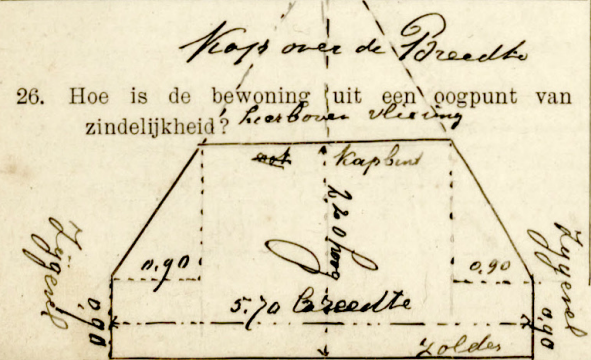 Kap over de Breedte
26. Hoe is de bewoning uit een oogpunt van
zindelijkheid? hierboven vliering
Kapbint
2,20 hoog
Zijgevel
0,90
0,90
Zijgevel
0,90
5.70 breedte
0,90
zolder